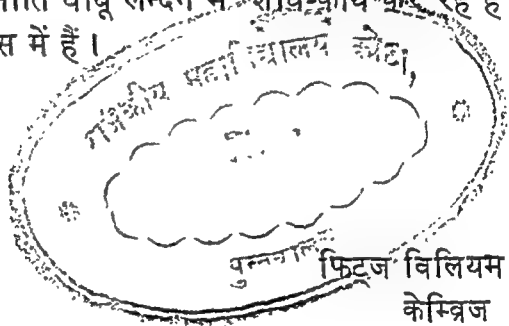 बाबू लन्दन में शोध-कार्य कर रहे हैं
स में हैं।
महाविद्यालय कोटा,
फिट्ज विलियम
केम्ब्रिज